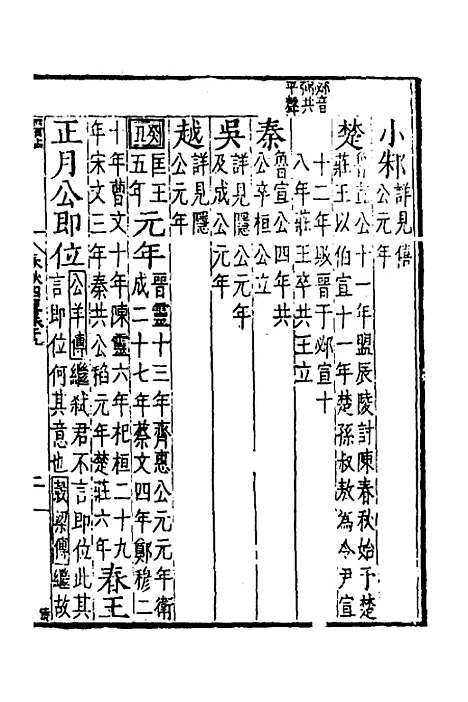 邲音
弼共
平聲
小邾詳見僖
公元年
楚魯宣公十一年盟辰陵討陳春秋始予楚
莊王以伯宣十一年楚孫叔敖為令尹宣
十二年敗晉于邲宣十
八年莊王卒共王立
秦魯宣公四年共
公卒桓公立
吳詳見隱公元年
及成公元年
越詳見隱
公元年
癸丑匡王五年元年晉靈十三年齊惠公元元年衛
成二十七年蔡文四年鄭穆二
十年曹文十年陳靈六年杞桓二十九
年宋文三年秦共公稻元年楚莊六年春王
正月公即位公羊傳繼弒君不言即位此其
言即位何其意也穀梁傳繼故
二